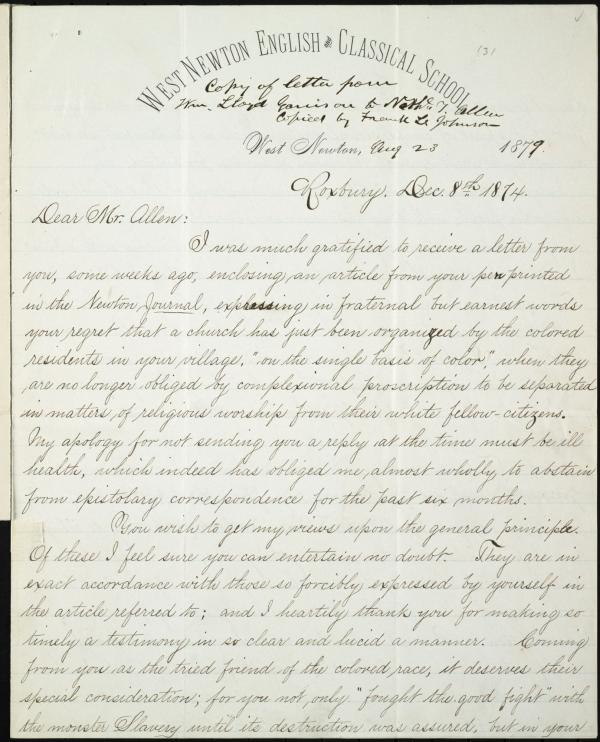 WEST NEWTON ENGLISH & CLASSICAL SCHOOL
(3)
Copy of letter from
Wm. Lloyd Garrison to Nathl. T. Allen
Copied by Frank Johnson
West Newton, Aug 23 1879.
Roxbury. Dec. 8th 1874.
Dear Mr. Allen:
I was much gratified to receive a letter from
you, some weeks ago, enclosing an article from your pen printed
in the Newton Journal, expressing in fraternal but earnest words
your regret that a church has just been organized by the colored
residents in your village, "on the single basis of color", when they
are no longer obliged by complexional proscription to be separated
in matters of religious worship from their white fellow-citizens.
My apology for not sending you a reply at the time must be ill
health, which indeed has obliged me almost wholly to abstain
from epistolary correspondence for the past six months.
You wish to get my views upon the general principle.
Of these I feel sure you can entertain no doubt. They are in
exact accordance with those so forcibly expressed by yourself in
the article referred to; and I heartily thank you for making so
timely a testimony in so clear and lucid a manner. Coming
from you as the tried friend of the colored race, it deserves their
special consideration; for you not only "fought the good fight" with
the monster Slavery until its destruction was assured, but in your